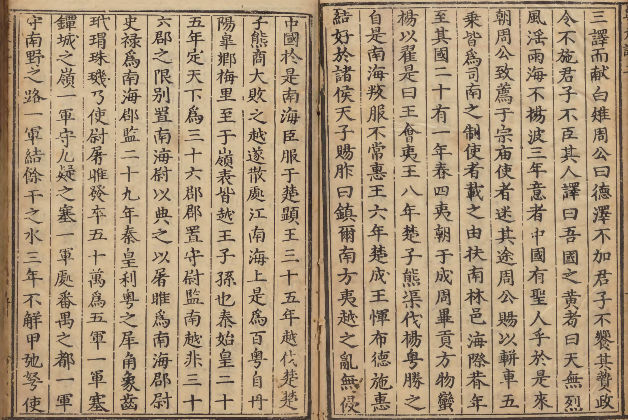 三譯而献白雉周公曰德澤不加君子不饗其贄政
令不施君子不臣其人譯曰吾國之黄耇曰天無烈
風滛雨海不揚波三年意者中國有聖人乎於是來
朝周公致薦于宗庙使者迷其途周公賜以軿車五
乗皆為司南之制使者載之由扶南林邑海際朞年
至其國二十有一年春四夷朝于成周畢貢方物蠻
楊以翟是曰王會夷王八年楚子熊渠伐楊粤勝之
自是南海叛服不常惠王六年楚成王惲布德施惠
結好於諸侯天子賜胙曰鎮爾南方夷越之亂無侵
中國於是南海臣服于楚顕王三十五年越伐楚楚
子熊商大敗之越遂散處江南海上是爲百粤自丹
陽臯鄉梅里至于嶺表皆越王子孫也秦始皇二十
五年定天下爲三十六郡郡置守尉監南越非三十
六郡之限别置南海尉以典之以屠睢爲南海郡尉
史禄爲南海郡監二十九年秦皇利粤之犀角象齒
玳瑁珠璣乃使尉屠睢發卒五十萬爲五軍一軍塞
鐔城之嶺一軍守九疑之塞一軍處番禺之都一軍
守南野之路一軍結餘干之水三年不解甲弛弩使